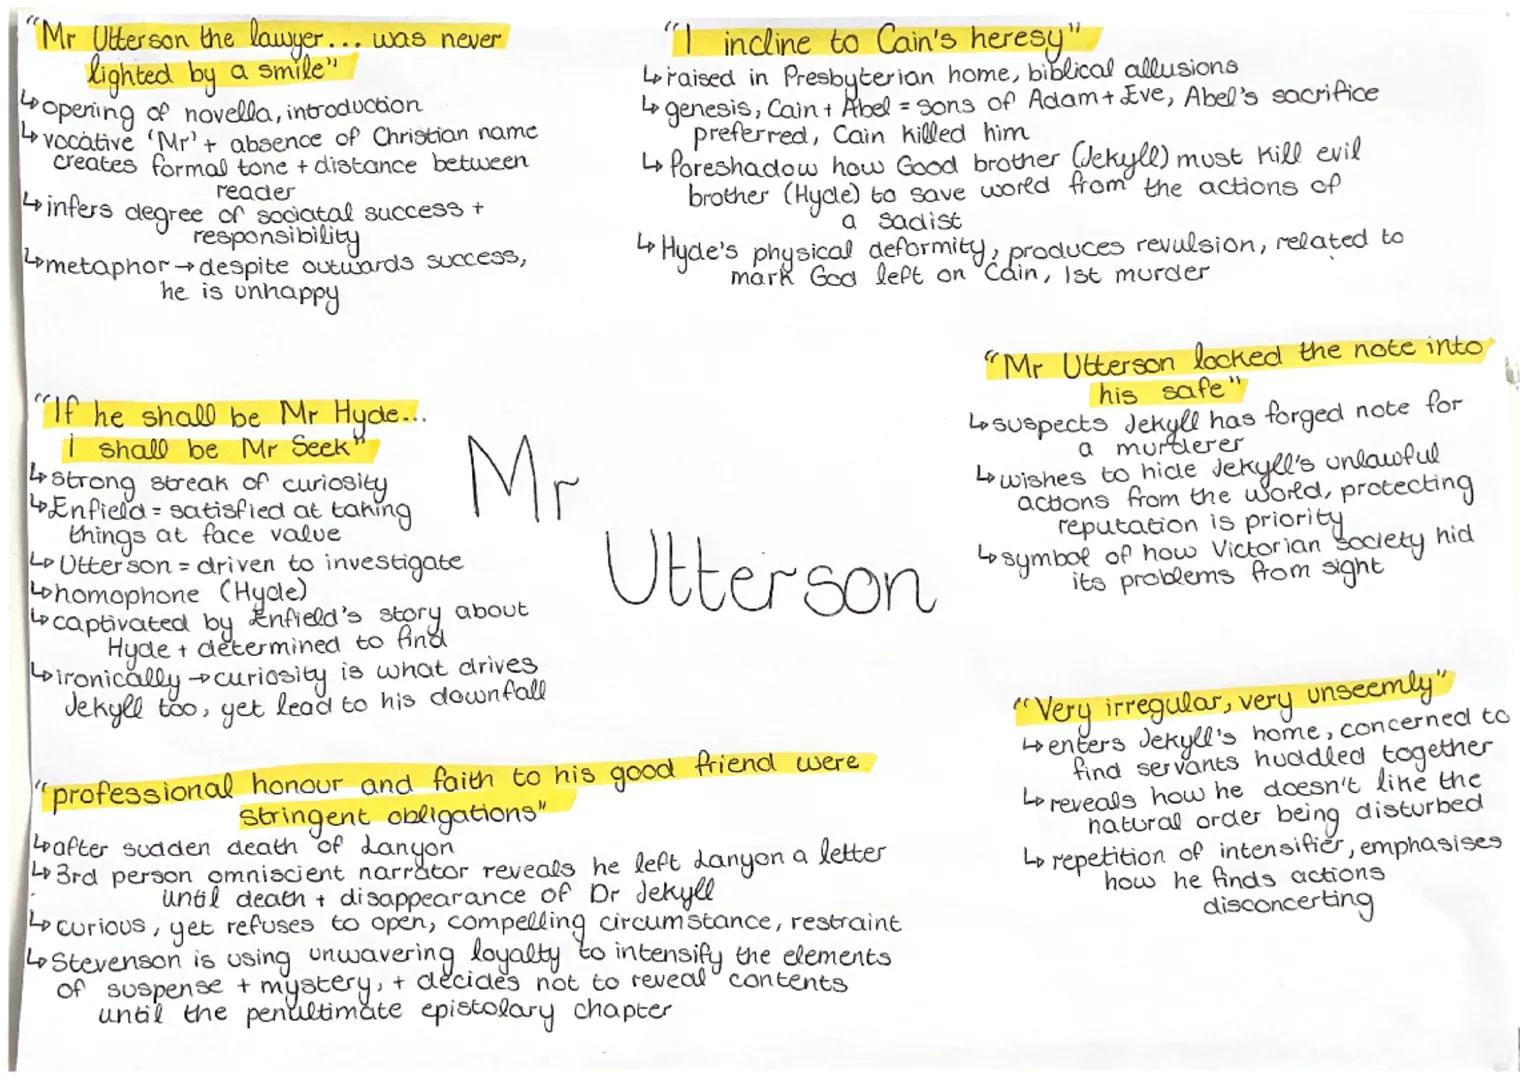 "Mr Utterson the lawyer... was never
lighted by a smile"
↳opening of novella, introduction
↳vocative 'Mr' + absence of Christian name
creates formal tone + distance between
reader
↳infers degree of sociatal success +
responsibility
↳metaphor → despite outwards success,
he is unhappy
"I incline to Cain's heresy"
↳raised in Presbyterian home, biblical allusions
↳genesis, Cain + Abel = sons of Adam + Eve, Abel's sacrifice
preferred, Cain killed him
↳foreshadow how Good brother (Jekyll) must kill evil
brother (Hyde) to save world from the actions of
a sadist
↳Hyde's physical deformity, produces revulsion, related to
mark God left on Cain, 1st murder
"If he shall be Mr Hyde...
i shall be Mr Seek"
↳strong streak of curiosity
↳Enfield = satisfied at taking
things at face value
↳Utterson = driven to investigate
↳homophone (Hyde)
↳captivated by Enfield's story about
Hyde + determined to find
↳ironically → curiosity is what drives
Jekyll too, yet lead to his downfall
Mr
Utterson
"Mr Utterson locked the note into
his safe"
↳suspects Jekyll has forged note for
a murderer
↳wishes to hide Jekyll's unlawful
actions from the world, protecting
reputation is priority
↳symbol of how Victorian society hid
its problems from sight
"Very irregular, very unseemly"
↳enters Jekyll's home, concerned to
find servants huddled together
↳reveals how he doesn't like the
natural order being disturbed
↳repetition of intensifier, emphasises
how he finds actions
disconcerting
"professional honour and faith to his good friend were
stringent obligations"
↳after sudden death of Lanyon
↳3rd person omniscient narrator reveals he left Lanyon a letter
until death + disappearance of Dr Jekyll
↳curious, yet refuses to open, compelling circumstance, restraint
↳Stevenson is using unwavering loyalty to intensify the elements
of suspense + mystery, + decides not to reveal contents
until the penultimate epistolary chapter